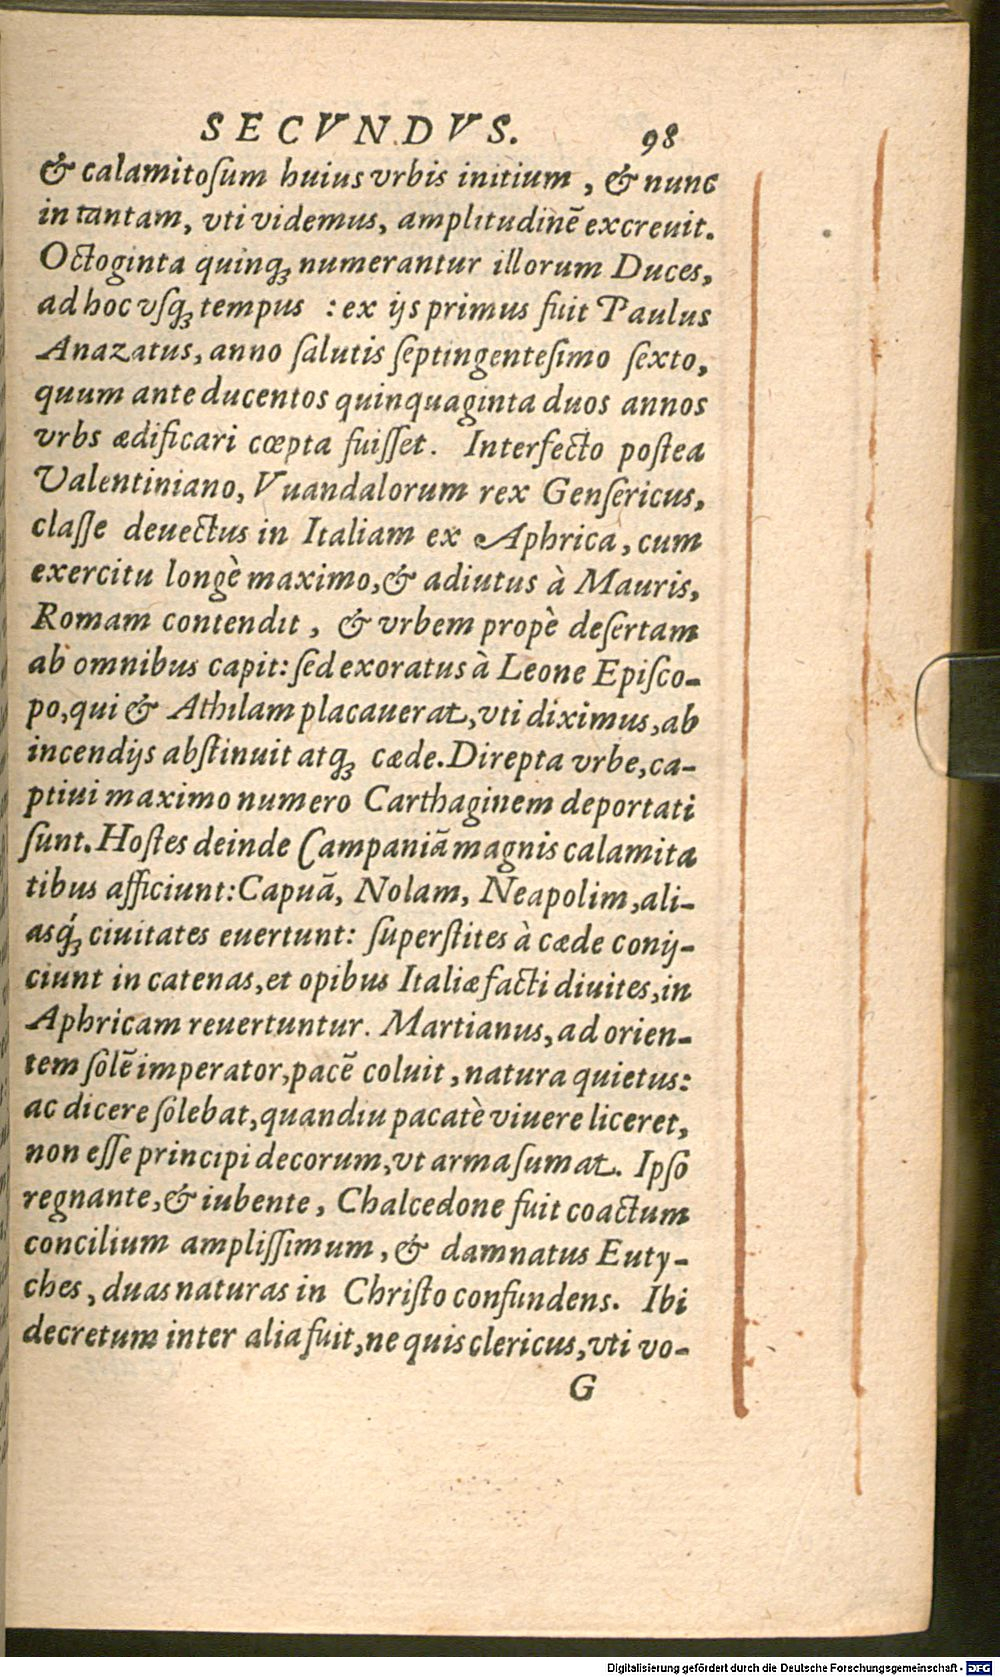 SECVNDVS. 98
& calamitoſum huius vrbis initium, & nunc
in tantam, vti videmus, amplitudinē excreuit.
Octoginta quinqꝫ numerantur illorum Duces,
ad hoc vſqꝫ tempus : ex ijs primus fuit Paulus
Anazatus, anno ſalutis ſeptingenteſimo ſexto,
quum ante ducentos quinquaginta duos annos
vrbs ædificari cœpta fuiſſet. Interfecto poſtea
Valentiniano, Vuandalorum rex Genſericus,
claſſe deuectus in Italiam ex Aphrica, cum
exercitu longè maximo, & adiutus à Mauris,
Romam contendit, & vrbem propè deſertam
ab omnibus capit: ſed exoratus à Leone Epiſco-
po, qui & Athilam placauerat, vti diximus, ab
incendijs abſtinuit atqꝫ cæde. Direpta vrbe, ca-
ptiui maximo numero Carthaginem deportati
ſunt. Hoſtes deinde Campaniā magnis calamita
tibus afficiunt: Capuā, Nolam, Neapolim, ali-
asq́ꝫ ciuitates euertunt: ſuperſtites à cæde conij-
ciunt in catenas, et opibus Italiæ facti diuites, in
Aphricam reuertuntur. Martianus, ad orien-
tem ſolē imperator, pacē coluit, natura quietus:
ac dicere ſolebat, quandiu pacatè viuere liceret,
non eſſe principi decorum, vt arma ſumat. Ipſo
regnante, & iubente, Chalcedone fuit coactum
concilium ampliſſimum, & damnatus Euty-
ches, duas naturas in Chriſto confundens. Ibi
decretum inter alia fuit, ne quis clericus, vti vo-
G
Digitalisierung gefördert durch die Deutsche Forschungsgemeinschaft - DFG